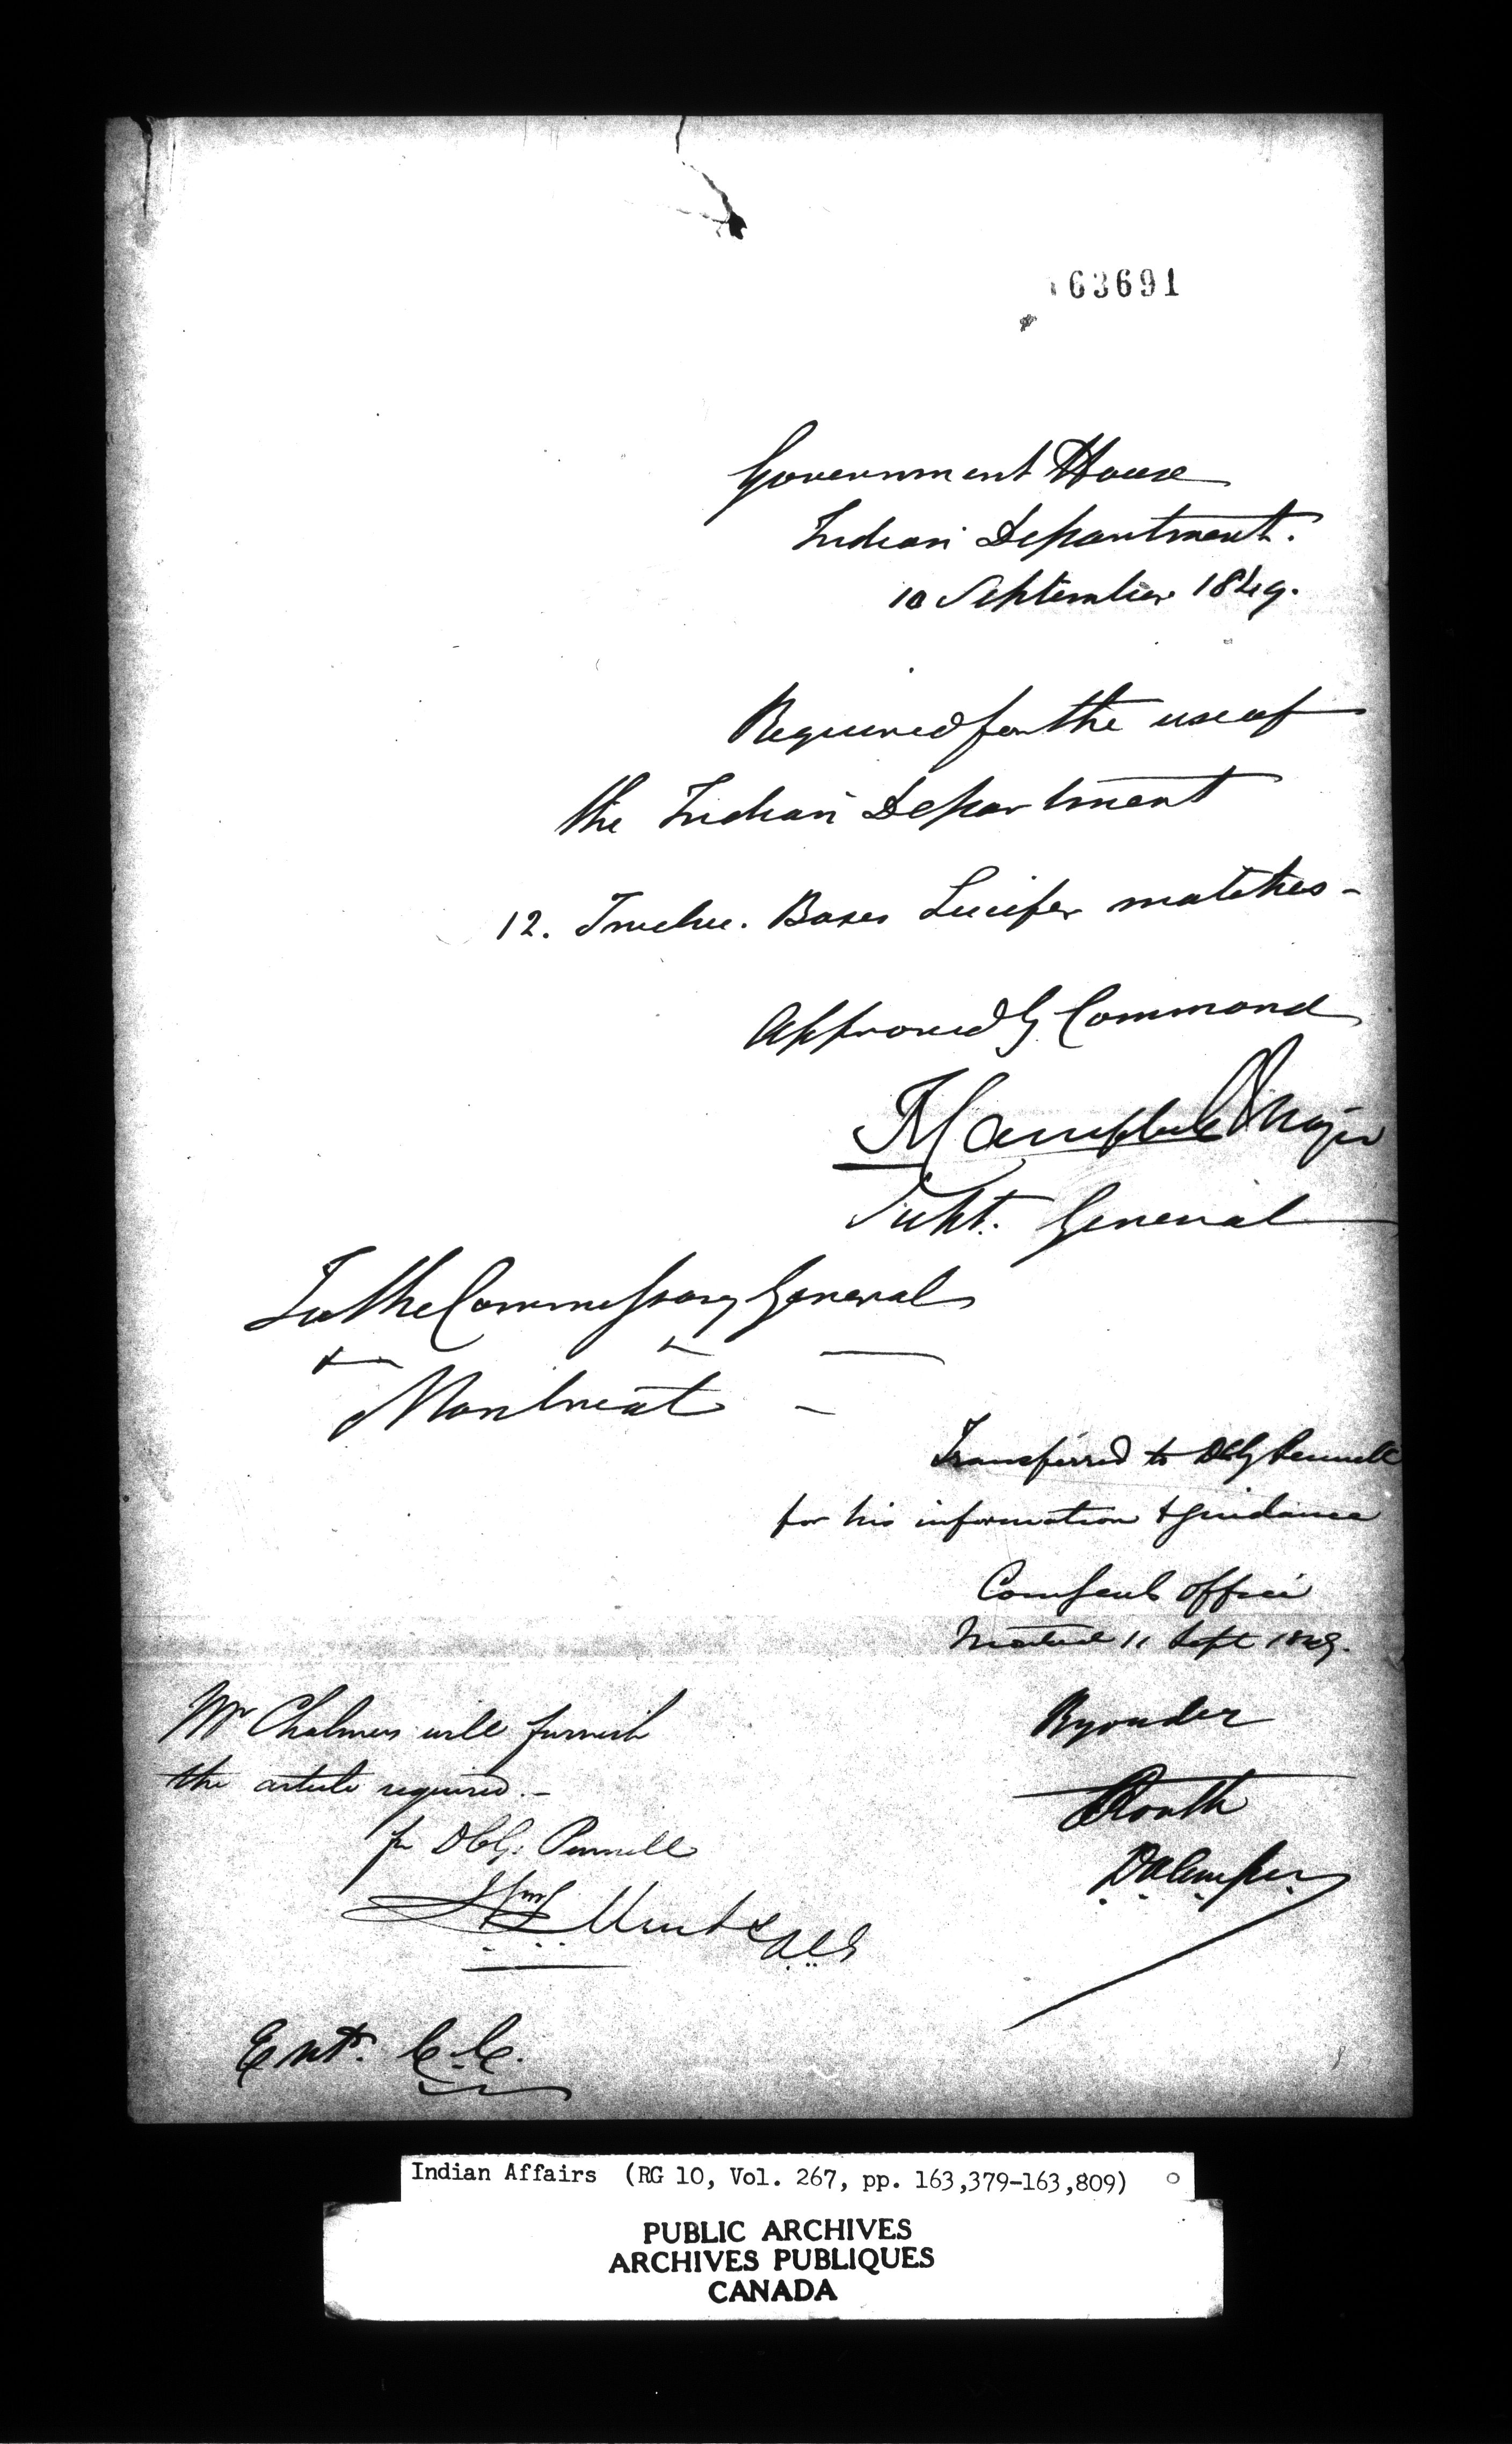 163691
Government House
Indian Department.
10 September 1849.
Required for the use of
the Indian Department
12. Twelve. Boxes Lucifer matches -
Approved by Command
T Campbell Major
Supt. General
To the Commissary General
Montreal -
Transferred to DCG Pennell
for his information & guidance
Comst Genls Office
Montreal 11 Sept 1849.
By order
Routh
Mr Chalmers will furnish
the article required. -
for DCG: Pennell
Ent. C.C.
Indian Affairs (RG 10, Vol. 267, pp. 163,379-163,809)
PUBLIC ARCHIVES
ARCHIVES PUBLIQUES
CANADA